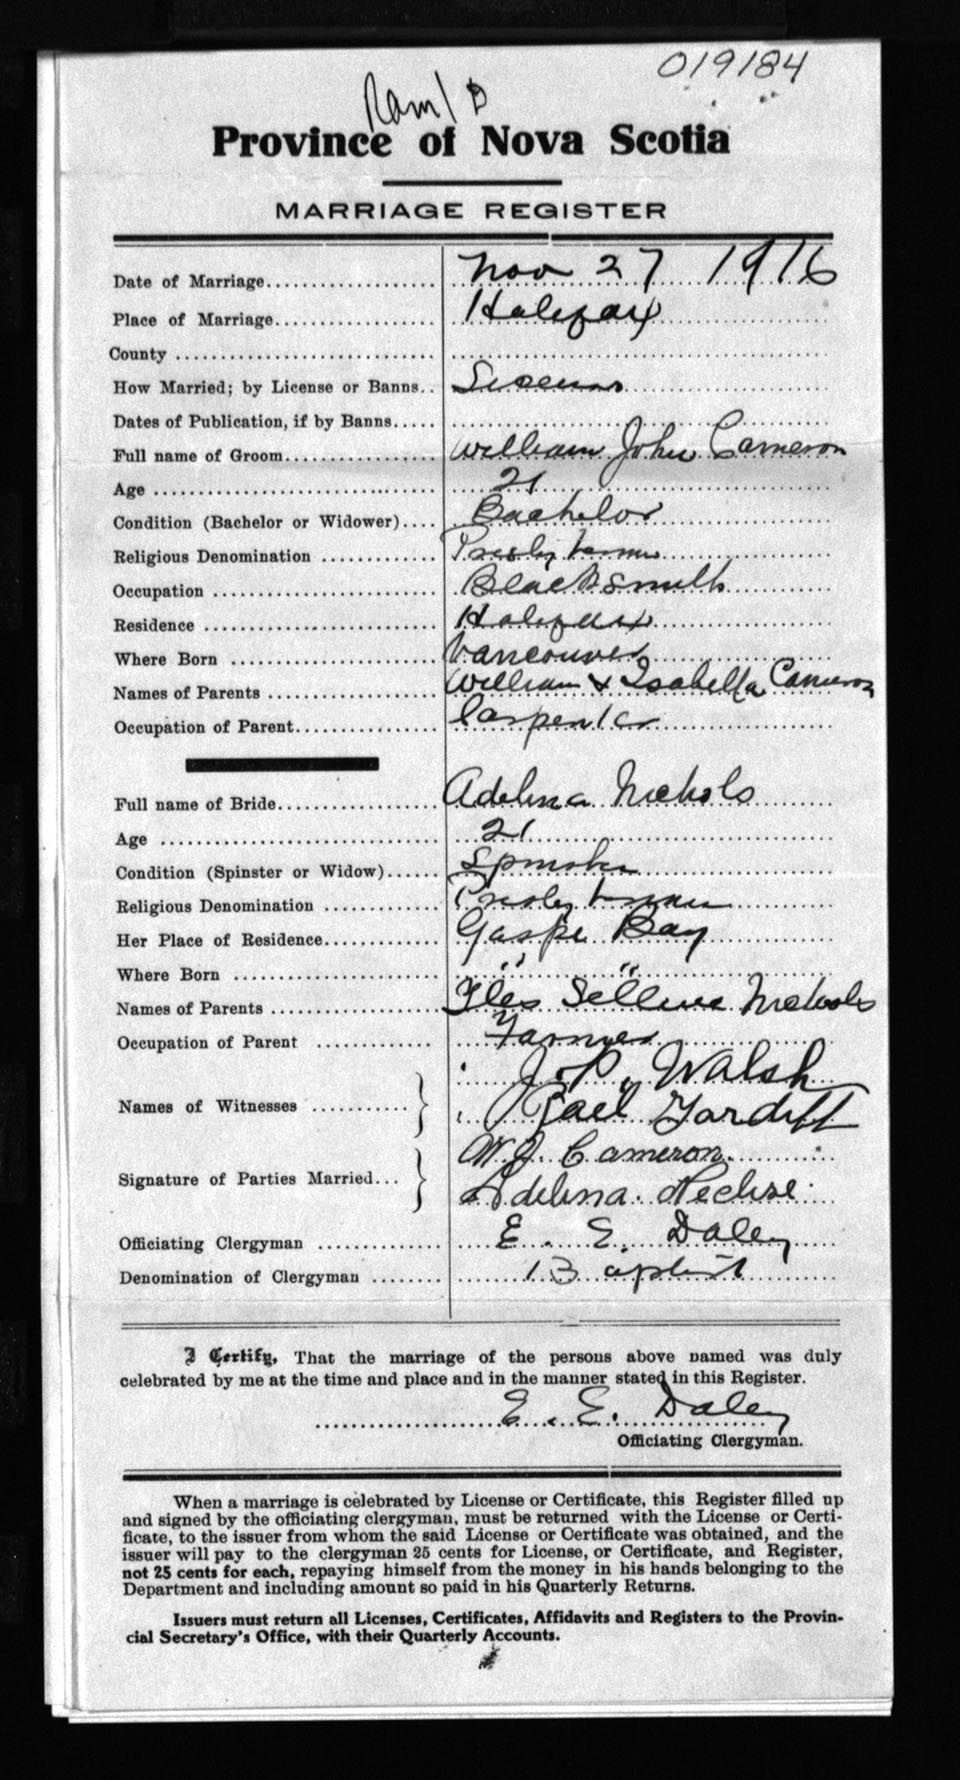 019184
Province of Nova Scotia
MARRIAGE REGISTER
Date of Marriage Nov 27 1916
Place of Marriage Halifax
County
How Married; by License or Banns License
Dates of Publication, if by Banns
Full name of Groom William John Cameron
Age 21
Condition (Bachelor or Widower) Bachelor
Religious Denomination Presbyterian
Occupation Blacksmith
Residence Halifax
Where Born Vancouver
Names of Parents William & Isabella Cameron
Occupation of Parent Carpenter
Full name of Bride Adelina Nichols
Age 21
Condition (Spinster or Widow) Spinster
Religious Denomination Presbyterian
Her Place of Residence Gaspe Bay
Where Born " "
Names of Parents Nichols
Occupation of Parent Farmer
Names of Witnesses J. P. Walsh
Signature of Parties Married W. J. Cameron
Adelina
Officiating Clergyman E. E. Daley
Denomination of Clergyman Baptist
I Certify, That the marriage of the persons above named was duly
celebrated by me at the time and place and in the manner stated in this Register.
E. E. Daley
Officiating Clergyman.
When a marriage is celebrated by License or Certificate, this Register filled up
and signed by the officiating clergyman, must be returned with the License or Certi-
ficate, to the issuer from whom the said License or Certificate was obtained, and the
issuer will pay to the clergyman 25 cents for License, or Certificate, and Register,
not 25 cents for each, repaying himself from the money in his hands belonging to the
Department and including amount so paid in his Quarterly Returns.
Issuers must return all Licenses, Certificates, Affidavits and Registers to the Provin-
cial Secretary's Office, with their Quarterly Accounts.